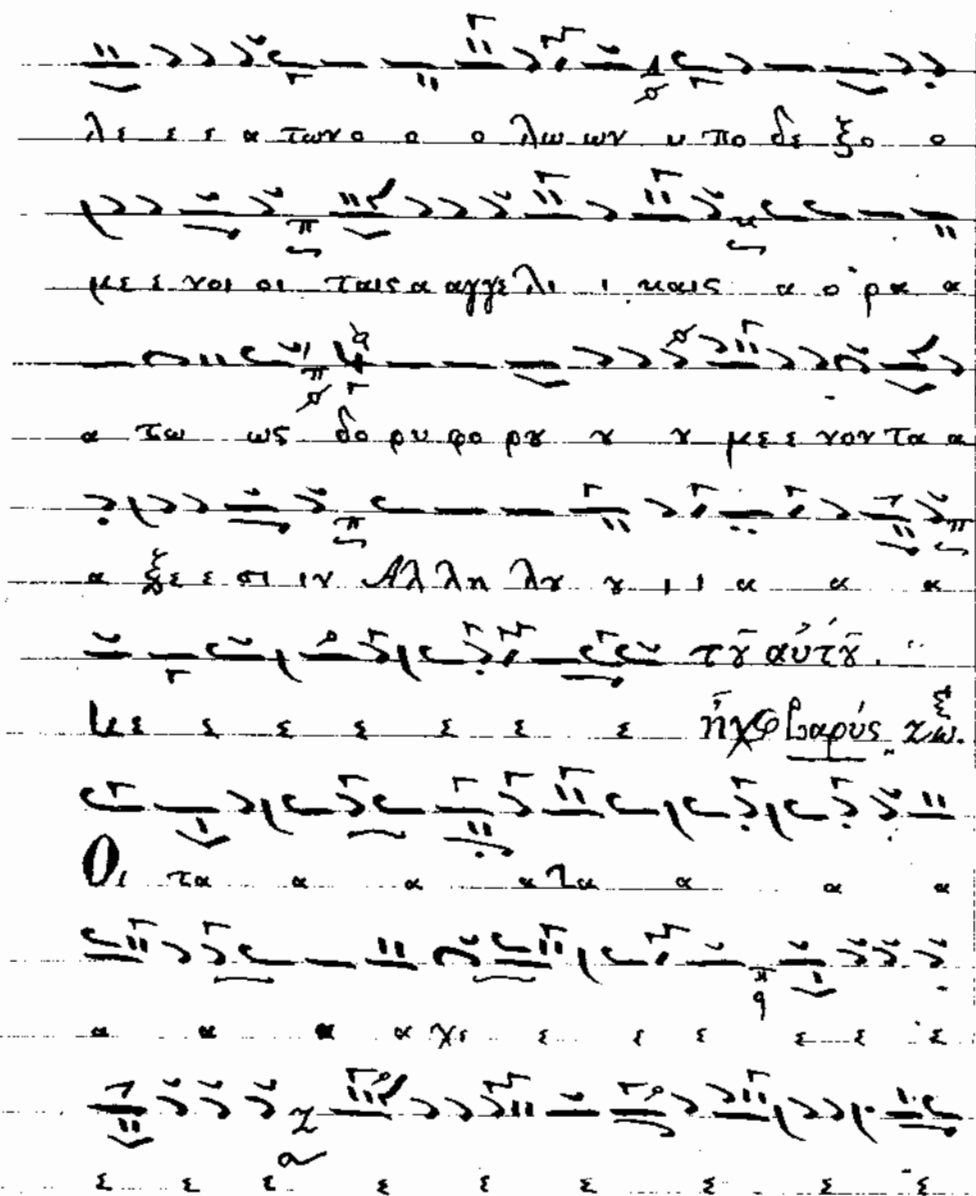 λε ε ε α των ο ο ο λω ων υ πο δε ξο ο
με ε νοι οι ταις α αγγε λι ι καις α ο ρα α
α τω ως δο ρυ φο ρȣ ȣ ȣ με ε νον τα α
α ξε ε σι ιν Αλ λη λȣ ȣ ι ι α α α
τȣ αὐτȣ̃.
Κε ε ε ε ε ε ε ἦχος βαρύς ζω.
Οι τα α α α τα α α α
α α α α χε ε ε ε ε ε ε
ε ε ε ε ε ε ε ε